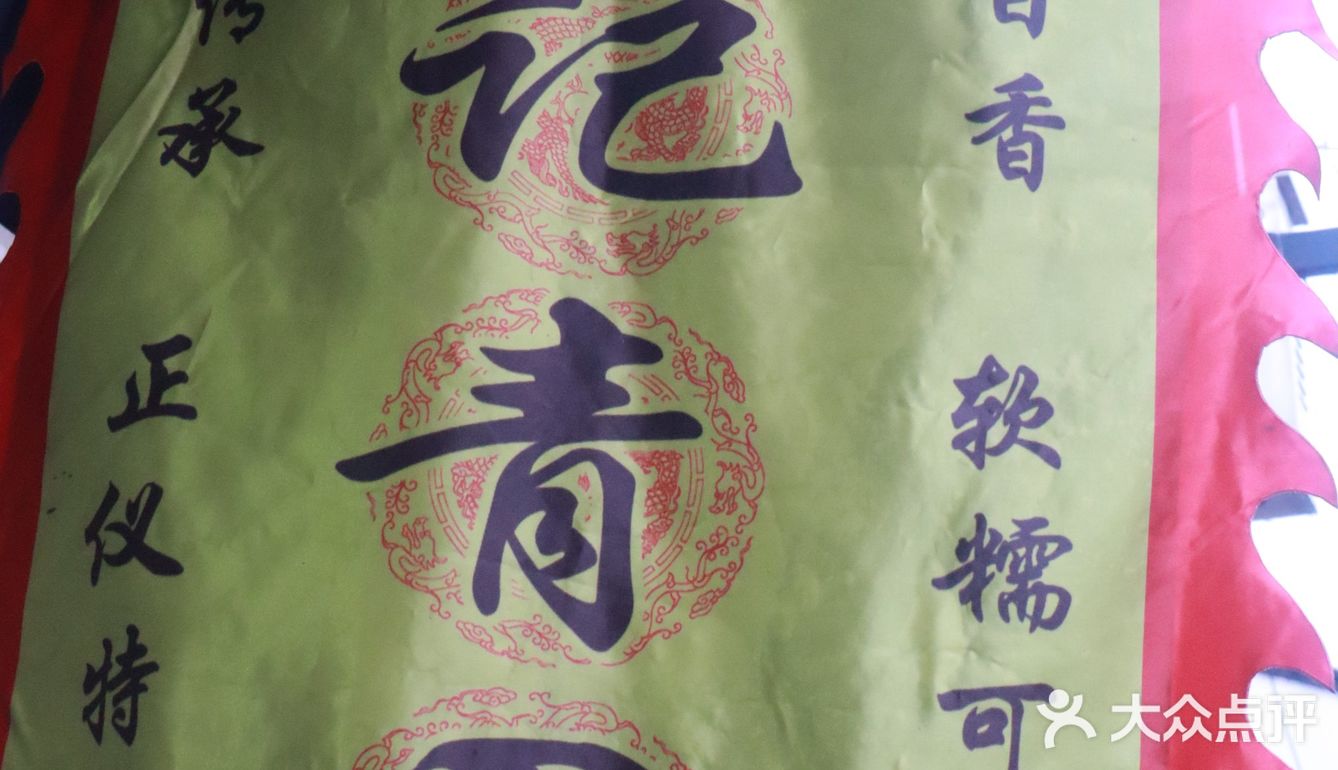 香
软糯可
记青
承
正仪特
大众点评